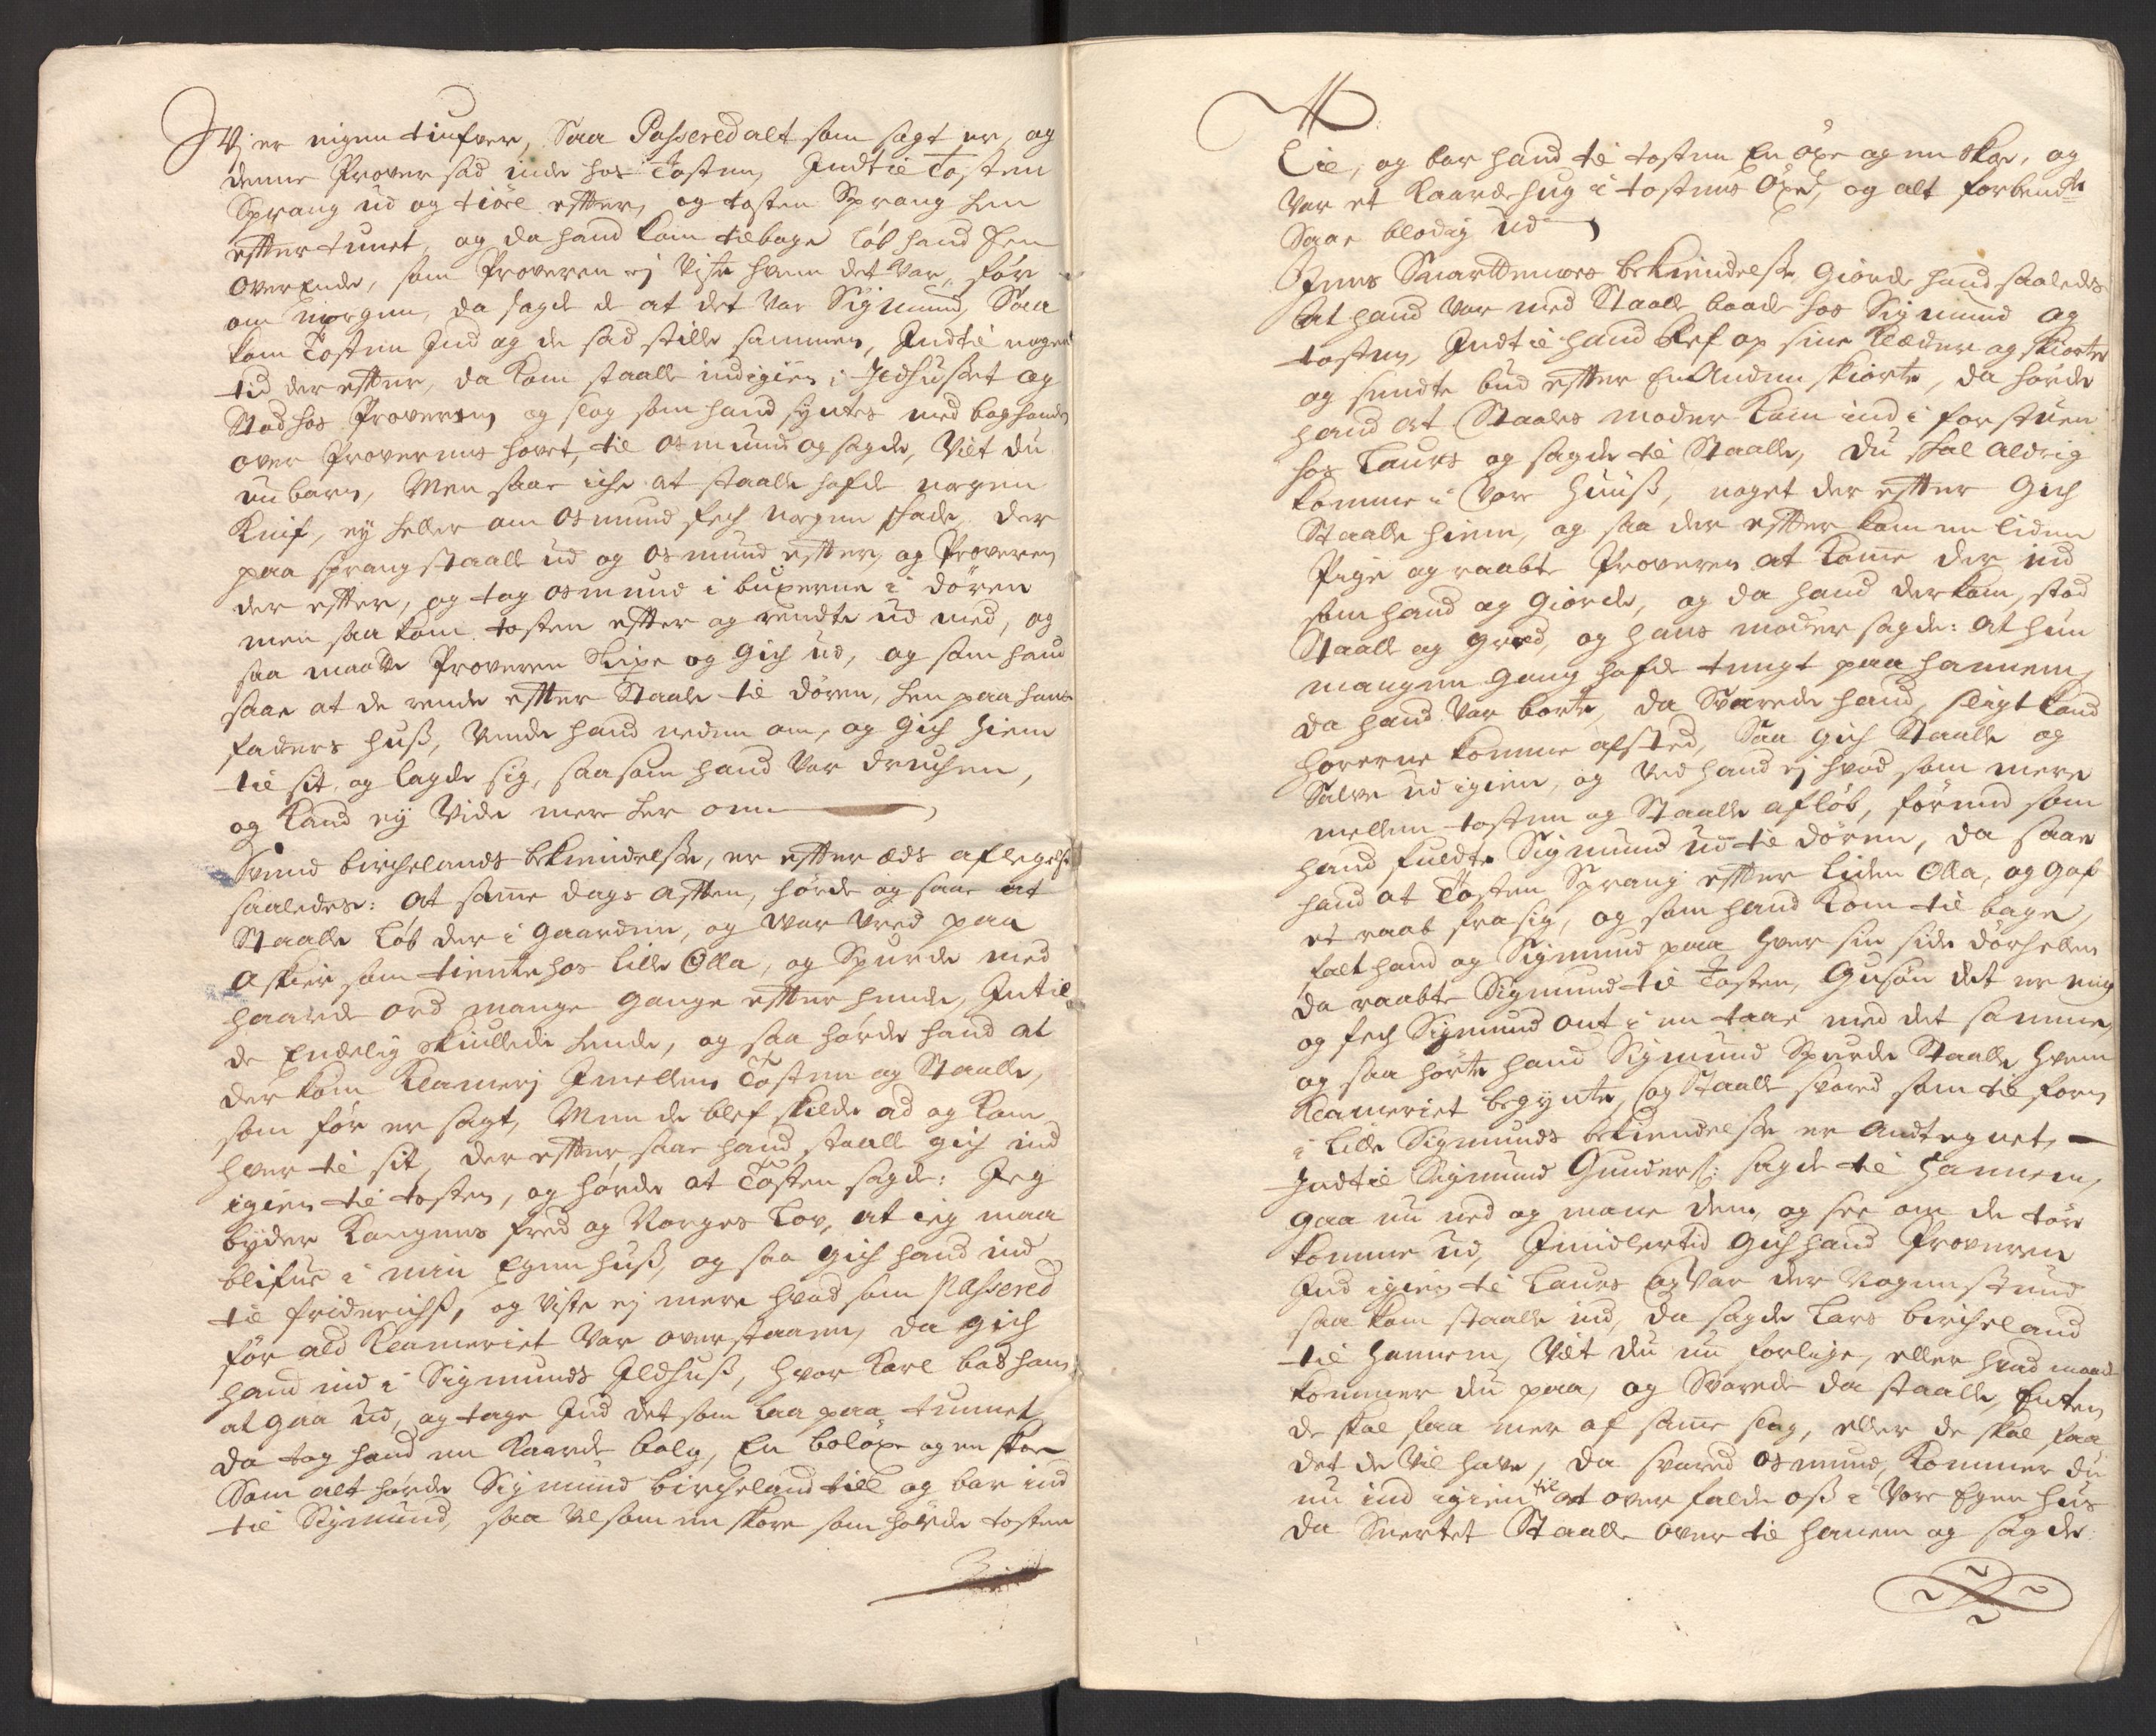 Vj er nigen tiufver, Saa Passered alt som sagt er, og
denne Prover sad inde hos Tosten, Indtil Tosten
Sprang ud og Kiöre efter, og tosten Sprang hen
efter tunet, og da hand kom tilbage löb hand hen
over Ende, som Proveren ej Viste hvem det var, för
om morgen, da sagde de at det var Sigmund, Saa
kom Tosten Ind og de sad stille sammen, Indtil nogen
tid der efter, da kom staalle ind igien i Ildhuset og
Stod hos Proveren, og slog som hand syntes med baghanden
over Proverens hovet, til Osmund og sagde, Vilt du
un barn, Men saae iche at staalle hafde nogen
Knif, ej heller om Osmund fech nogen skade, der
paa sprang staalle ud og Osmund efter, og Proveren
der efter, og tog Osmund i buxerne i dören
men saa kom tosten efter og rendte ud med, og
saa maatte Proveren Slipe og gich ud, og som hand
saae at de rende efter Staale til dören, hen paa hans
faders huß, Vende hand neden om, og gich hiem
til sit, og lagde sig, saasom hand var druchen,
og Kand ej Vide mere her om
Svend birchelands bekiendelse, er efter Eds aflegelse
saaledes: at samme dags aften, hörde og saae at
Staalle löb der i gaarden, og var Vred paa
Asker som tiente hos lille Olla, og Spurde med
haarde ord mange gange efter hende, Intil
de Endelig skiullede hende, og saa hörde hand at
der kom Klamerj Imellem Tosten og Staalle,
som för er sagt, Men de blef skilde ad og kom
hver til sit, der efter saae hand staalle gich ind
igien til tosten, og hörde at Tosten sagde: Jeg
byder Kongens fred og Norges Lov, at ieg maa
blifue i min Egen huß, og saa gich hand ind
til friderichß, og viste ej mere hvad som Passered
för ald Klameriet var overstaaen, da gich
hand ind i Sigmunds Ildhuß, hvor Karl bad ham
at gaa ud, og tage Ind det som laa paa tunnet,
da tog hand en Kaarde balg, En bolöxe og en skoe
Som alt hörde Sigmund birchelands till og bar ind
til Sigmund, saa vel som en skoe som hörde tosten
til, og bar hand til tosten En öxe og en skoe, og
var et Kaardehug i tostens Öxe, og alt forbendte
Saae blodig ud
Jens Svarttemoes bekiendelse giorde hand saaledes
at hand var med Staalle baade hos Sigmund og
tosten, Indtil hand Ref op sine Klæder og skiorte
og sendte bud efter En Anden skiorte, da hörde
hand at Staales moder kom ind i forstuen
hos Laurs og sagde til Staalle, du skal aldrig
komme i vor huuß, noget der efter gich
Staalle hiem, og saa der efter kom en liden
Pige og raabte Proveren at komme der ind
som hand og giorde, og da hand der kom, stod
Staalle og græd, og hans moder sagde: at hun
mangen gang hafde tungt paa hannem,
da hand var borte, da Svarede hand, sligt kand
horerne komme afsted, Saa gich Staalle og
Salve ud igien, og Ved hand ej hvad som mere
mellem tosten og Staalle aflöb, förend som
hand fuldte Sigmund ud til dören, da saae
hand at Tosten Sprang efter liden Olla, og gaf
et raab fra sig, og som hand kom til bage,
falt hand og Sigmund paa hver sin side dörhellen
da raabte Sigmund til Tosten, Gusön det er mig
og fech Sigmund ont i en taae med det samme,
og saa hörte hand Sigmund Spurde Staalle hvem
Klameriet begynte, og Staalle svared som til forn
i lille Sigmunds bekiendelse er Andtegnet,
Indtil Sigmund Gunders: sagde til hannem,
gaa nu ned og mane dem, og see om de tör
komme ud, Imidlertid gich hand Proveren
Ind igien til Laurs og var der Nogen stund
saa kom staalle ind, da sagde Lars bircheland
til hannem, Vilt du nu forlige, eller hvad maade
kommer du paa, og Svarede da staalle, Enten
de skal faa mer af samme slag, eller de skal faa
det de vil have, da svared Osmund, kommer du
nu ind igien til at over falde oß i Vore Egen hus
da Snertet Staalle over til hanem og sagde: